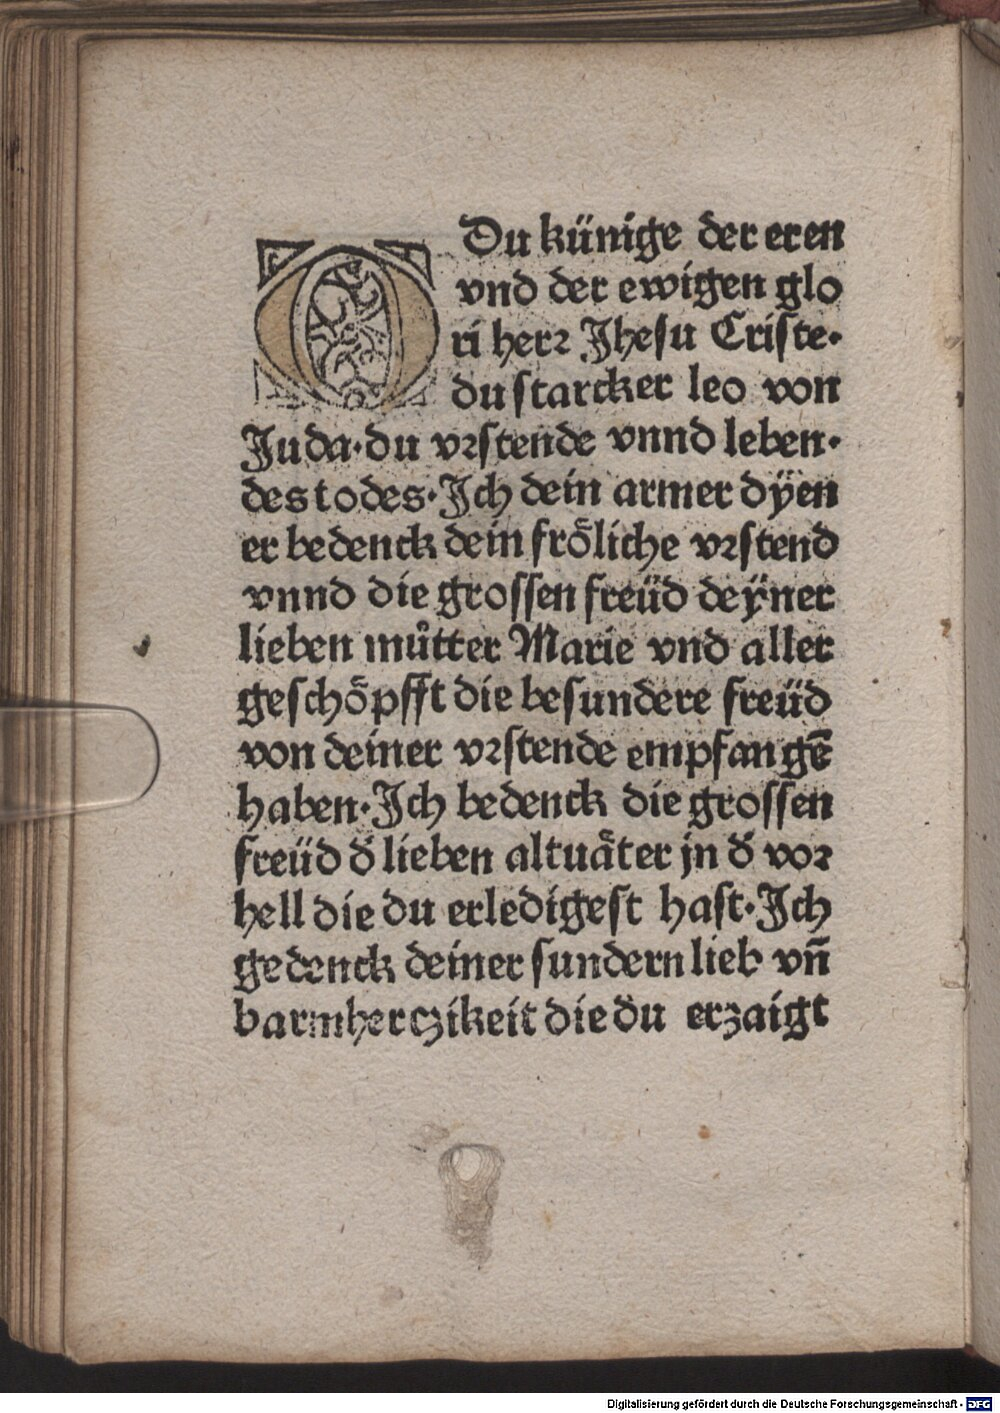 O Du künige der eren
vnd der ewigen glo
ri herꝛ Jhesu Criste·
du starcker leo von
Juda·du vꝛstende vnnd leben·
des todes·Ich dein armer dÿen
er bedenck dein froͤliche vꝛstend
vnnd die grossen freüd deÿner
lieben muͦtter Marie vnd aller
geschoͤpfft die besundere freüd
von deiner vꝛstende empfangē
haben·Ich bedenck die grossen
freüd d̓ lieben altuaͤter jn d̓ voꝛ
hell die du erledigest hast·Ich
gedenck deiner sundern lieb vn̄
barmherczikeit die du erzaigt
Digitalisierung gefördert durch die Deutsche Forschungsgemeinschaft - DFG